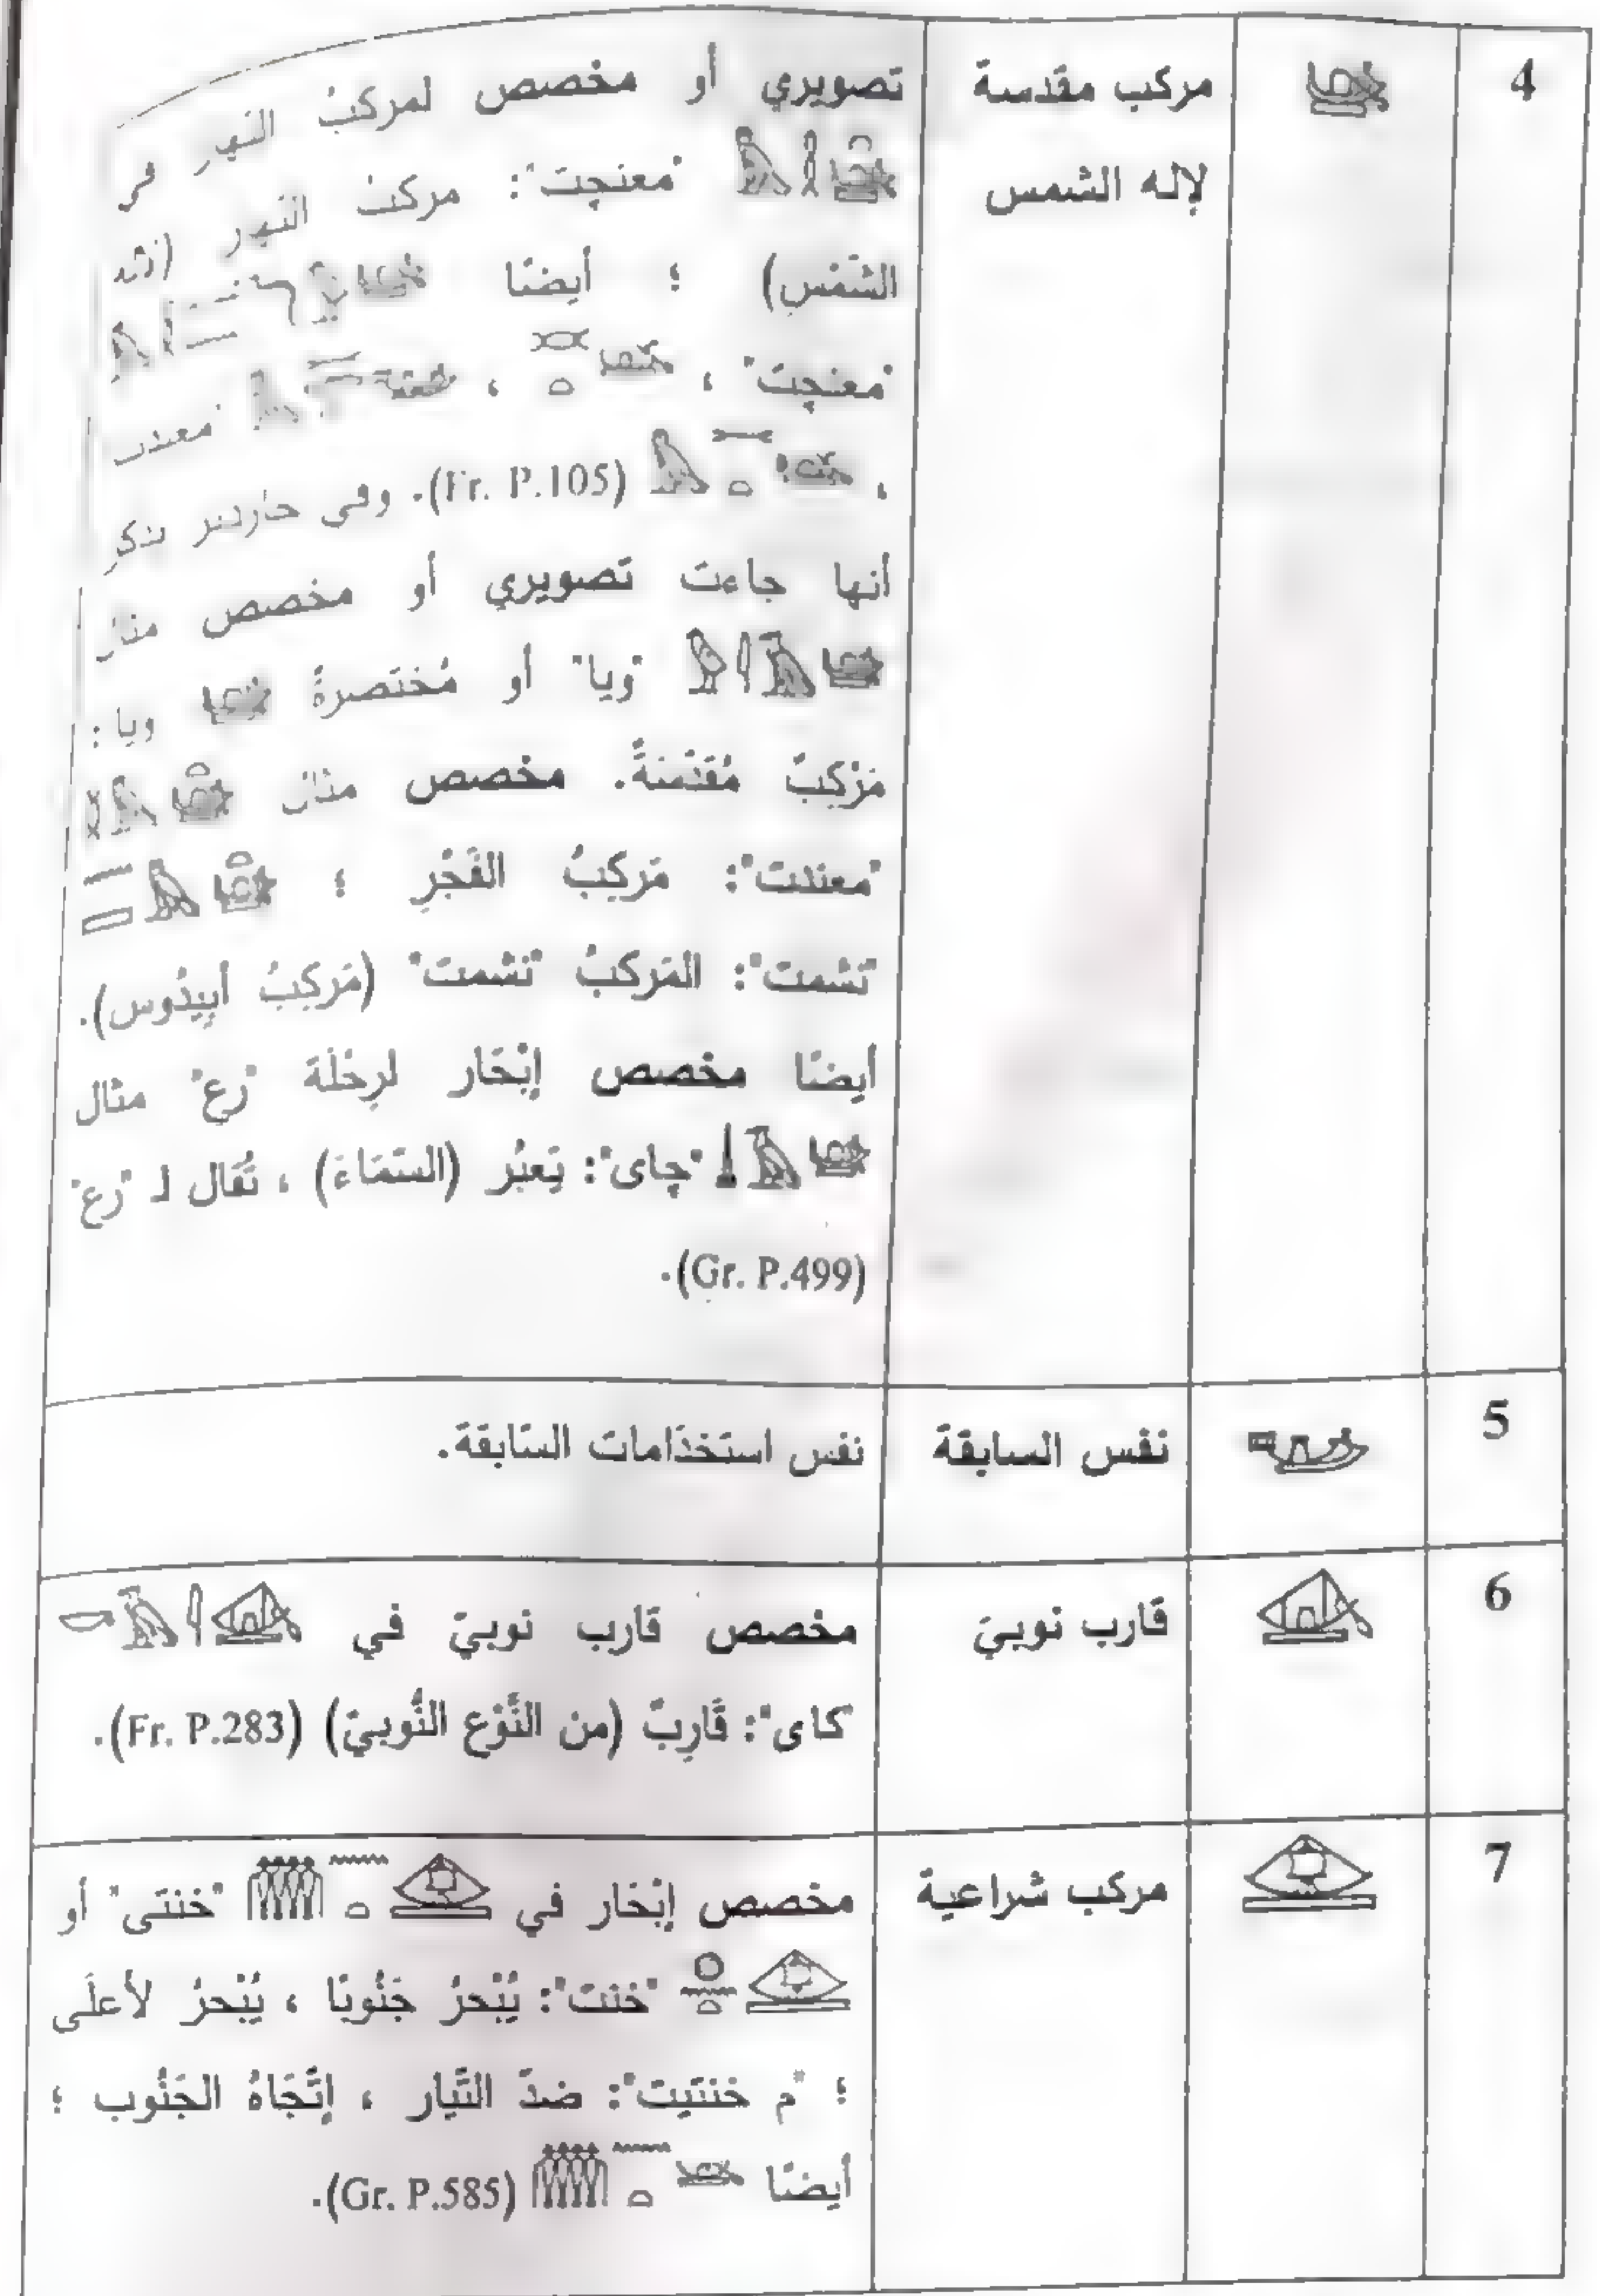 4
مركب مقدسة
لإله الشمس
تصويري أو مخصص لمركب النهار في
"معنجت": مركب النهار (لإله
الشَّمْسِ) ؛ أيضًا
"معنجت" ، ، "معندت"
، (Fr. P.105). وفي جاردنر يذكر
أنها جاءت تصويري أو مخصص مثال
"ويا" أو مُختصرةً ويا:
مَرْكِبٌ مُقَدَّسَةٌ. مخصص مثال
"معندت": مَركِبُ الفَجْرِ ؛
"نشمت": المَركبُ "نشمت" (مَركِبُ أبيدُوس).
أيضًا مخصص إبْحَار لرِحْلَة "رع" مثال
"چاى": يَعبُر (السَّمَاءَ) ، تُقال لـ "رع"
(Gr. P.499).
5
نفس السابقة
نفس استخدَامات السَّابقة.
6
قارب نوبيّ
مخصص قارب نوبيّ في
"كاى": قَارِبٌ (من النَّوْع النُّوبيّ) (Fr. P.283).
7
مركب شراعية
مخصص إبْحَار في "خنتى" أو
"خنت": يُبْحرُ جَنُوبًا ، يُبْحرُ لأعلَى
؛ "م خنتيت": ضدّ التَّيار ، إتَّجَاهُ الجَنُوب ؛
أيضًا (Gr. P.585).